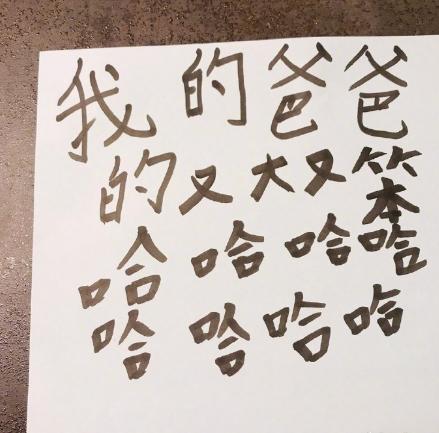 我的爸爸
的又大又笨
哈哈哈哈
哈哈哈哈